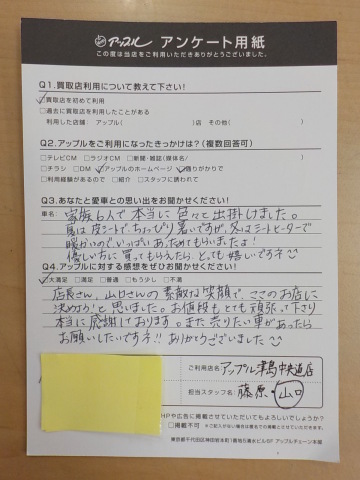 アップル アンケート用紙
この度は当店をご利用いただきありがとうございました。
Q1.買取店利用について教えて下さい!
□買取店を初めて利用
□過去に買取店を利用したことがある
利用した店舗: アップル( )店 その他( )
Q2.アップルをご利用になったきっかけは?(複数回答可)
□テレビCM □ラジオCM □新聞・雑誌(媒体名 )
□チラシ □DM □アップルのホームページ □通りがかりで
□利用経験があるので □紹介 □スタッフに誘われて
Q3.あなたと愛車との思い出をお聞かせください!
車名: 家族6人で本当に色々と出掛けました。
夏は皮シートで、ちょっぴり暑いですが、冬はシートヒーターで
暖かいので、いっぱいあたためてもらいましたよ!
優しい方に買ってもらえたら、とっても嬉しいですネ
Q4.アップルに対する感想をぜひお聞かせください!
□大満足 □満足 □普通 □もう少し □不満
店長さん、山口さんの素敵な笑顔で、ここのお店に
決めようと思いました。お値段もとても頑張って下さり
本当に感謝しております。また売りたい車があったら
お願いしたいですネ!! ありがとうございました
ご利用店名 アップル津島中央通店
担当スタッフ名 藤原・山口
HPや広告に掲載させていただいてもよろしいでしょうか?
□掲載不可 ※ご記入がない場合は匿名での掲載とさせていただきます。
東京都千代田区神田岩本町1番地5清水ビル5F アップルチェーン本部